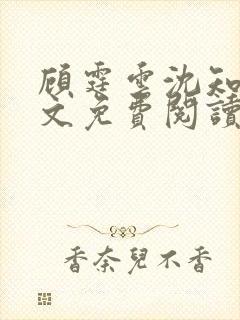 顾霆雪沈知
文免費閱讀
香奈兒不香